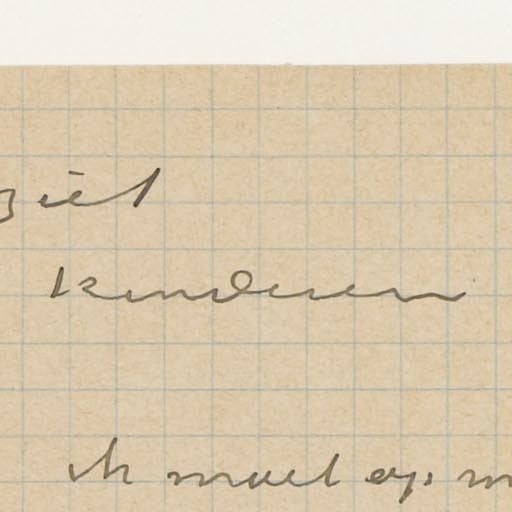 ziet
kinderen
ik moet op m